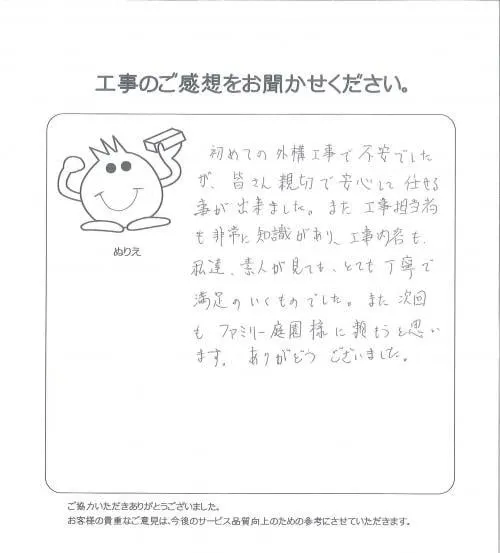 工事のご感想をお聞かせください。
ぬりえ
初めての外構工事で不安でした
が、皆さん親切で安心して任せる
事が出来ました。また工事担当者
も非常に知識があり、工事内容も、
私達、素人が見ても、とても丁寧で
満足のいくものでした。また次回
も ファミリー庭園様に頼もうと思い
ます。 ありがとう ございました。
ご協力いただきありがとうございました。
お客様の貴重なご意見は、今後のサービス品質向上のための参考にさせていただきます。